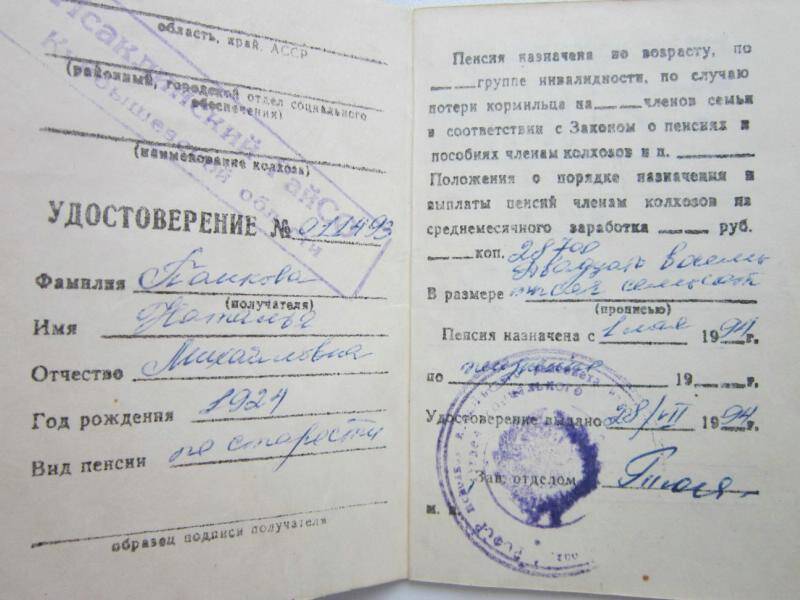 Исаклинский райСО
Куйбышевской области
область, край, АССР
(районный, городской отдел социального
обеспечения)
(наименование колхоза)
УДОСТОВЕРЕНИЕ № 011493
Фамилия
(получателя)
Имя Наталья
Отчество Михайловна
Год рождения 1924
Вид пенсии по старости
образец подписи получателя
Пенсия назначена по возрасту, по
группе инвалидности, по случаю
потери кормильца на членов семьи
в соответствии с Законом о пенсиях и
пособиях членам колхозов и п.
Положения о порядке назначения и
выплаты пенсий членам колхозов из
среднемесячного заработка руб.
коп. 28700
Двадцать восемь
В размере тысяч семьсот
(прописью)
Пенсия назначена с 1 мая 1994 г.
по пожизненно 19 г.
Удостоверение выдано 28/VII 1994 г.
Зав. отделом
м. п.
РСФСР